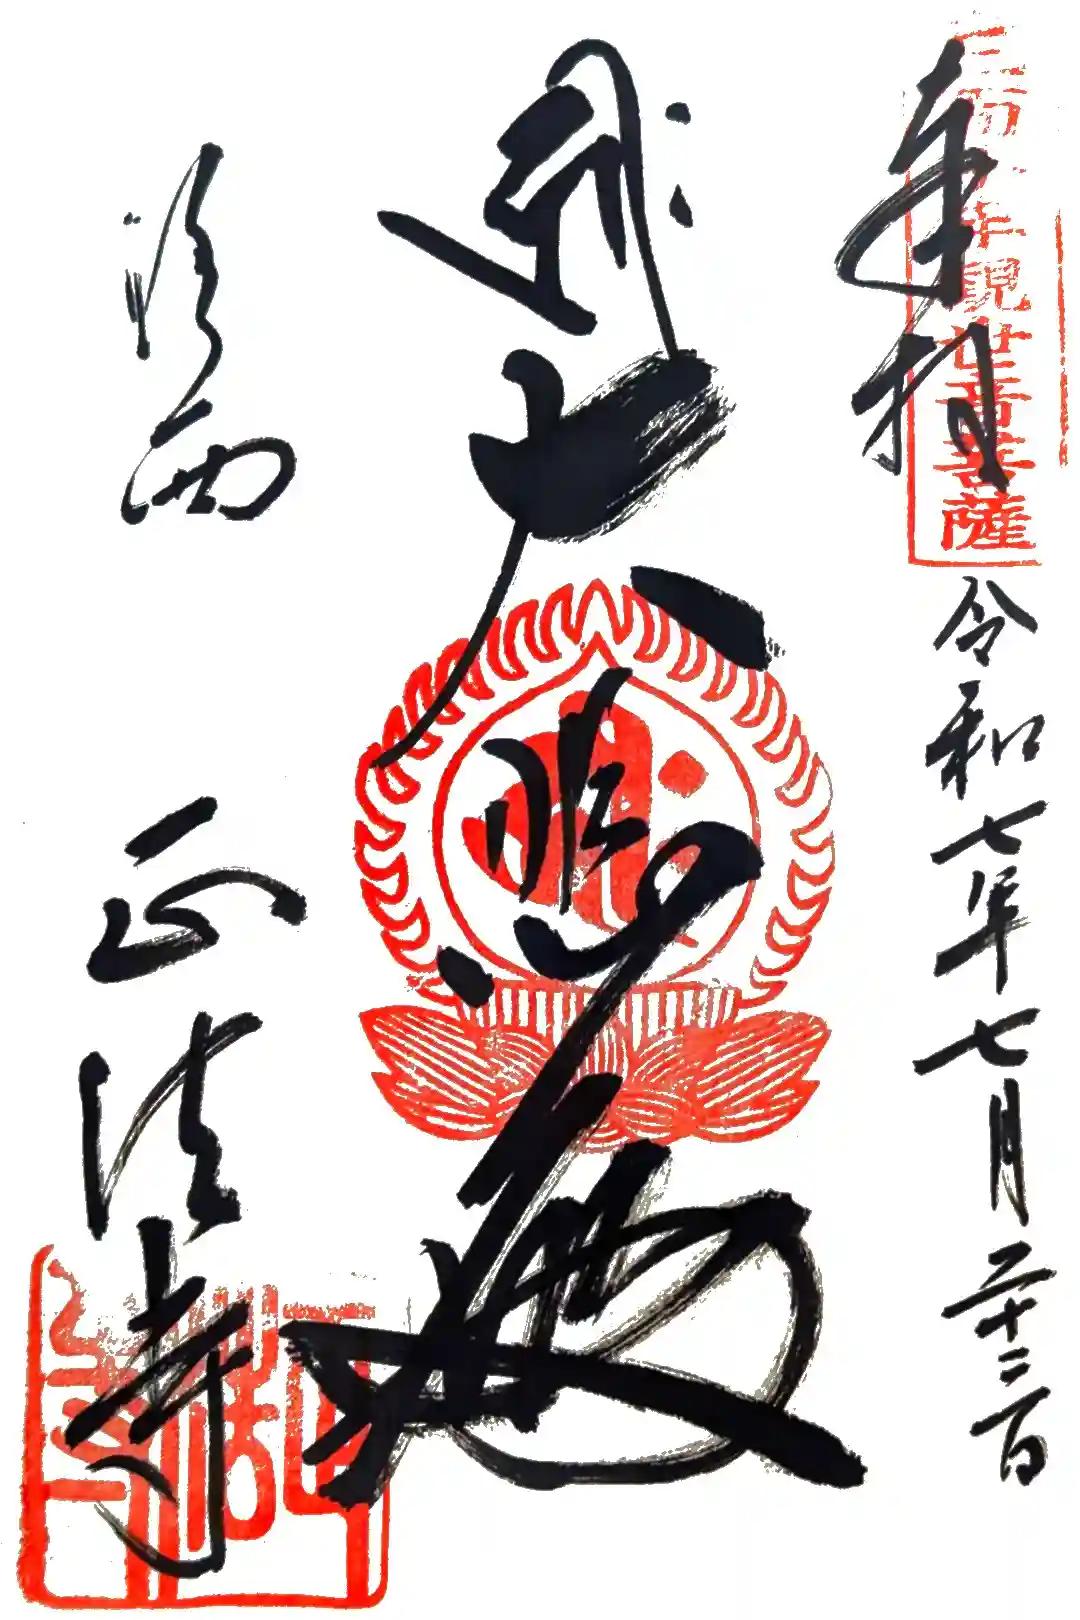 奉拝
三面千手観世音菩薩
令和七年七月二十二日
大悲殿
洛西
正法寺